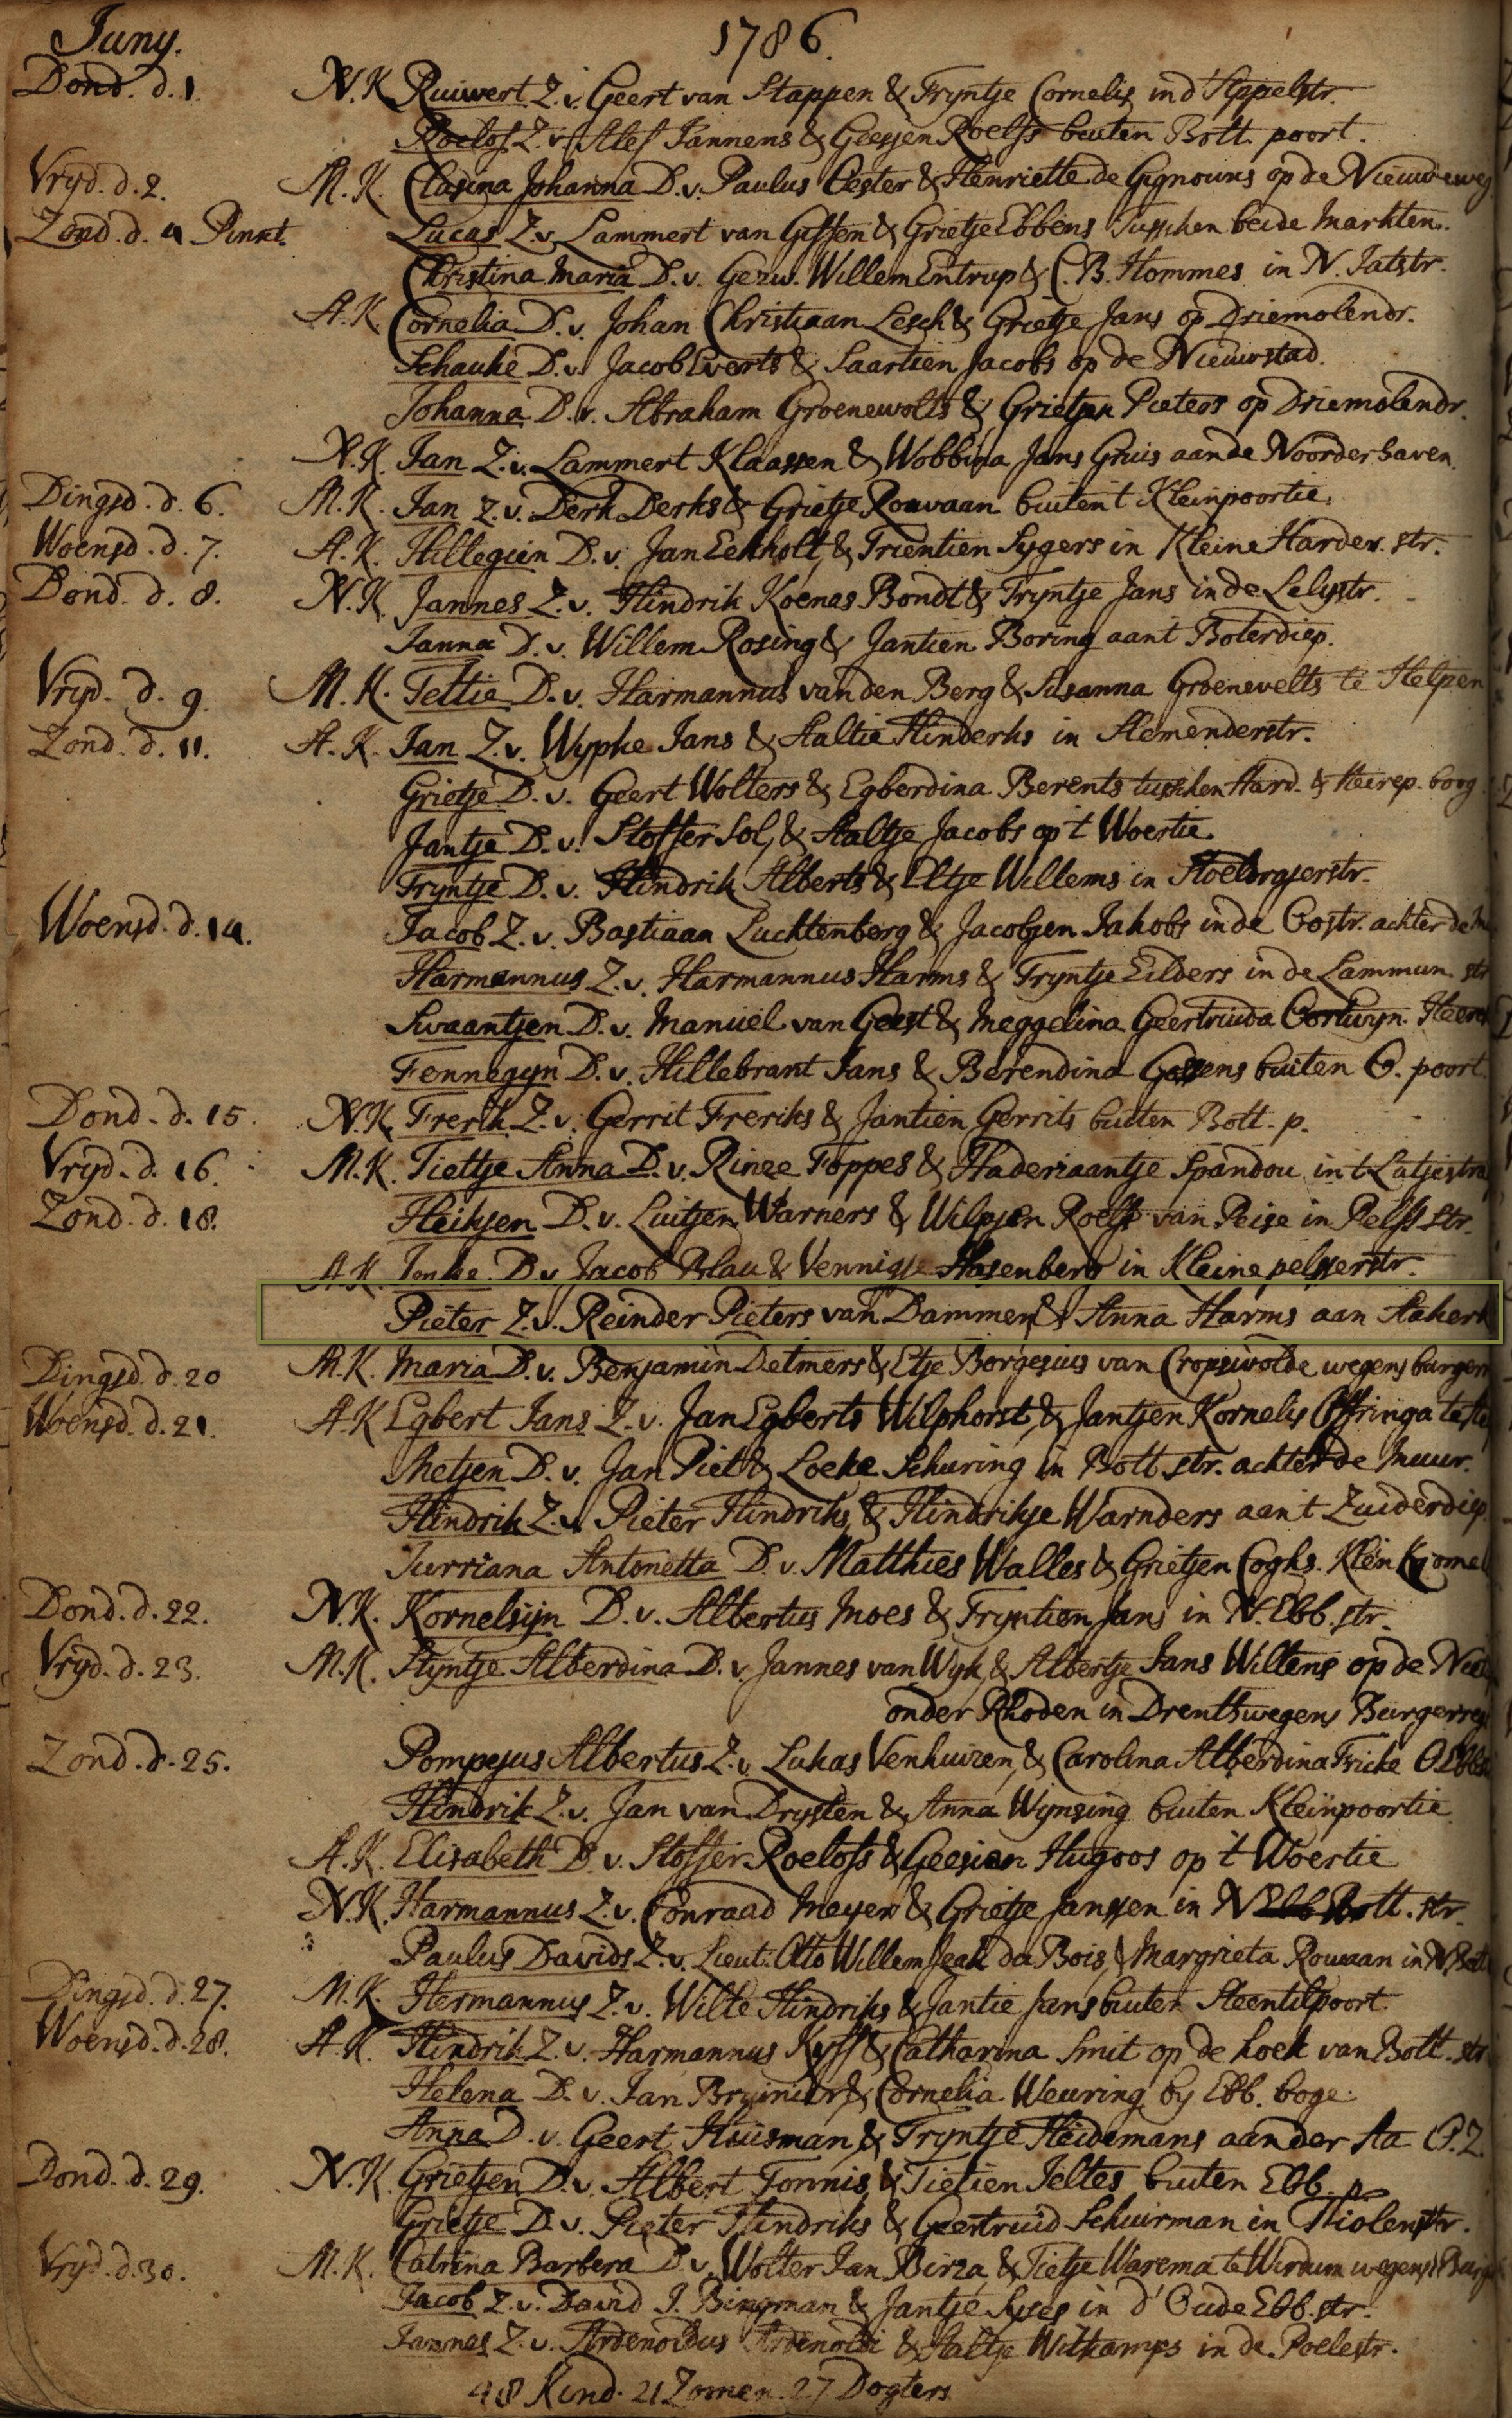 Juny. 1786.
Dond. d. 1. N.K. Ruiwert Z.v. Geert van Stappen & Tryntje Cornelis in d' Appelstr.
Roelof Z.v. Alef Jannens & Geesjen Roelfs buiten Bott. poort.
Vryd. d. 2. M.K. Clasina Johanna D.v. Paulus Oester & Henriette de Gignouns op de Nieuweweg
Zond. d. 4 Pinxt. Lucas Z.v. Lammert van Giffen & Grietje Ebbens Tusschen beide Markten.
Christina Maria D.v. Gezw. Willem Entrup & C.B. Hommes in N. Jatstr.
A.K. Cornelia D.v. Johan Christiaan Lesch & Grietje Jans op Driemolendr.
Schauke D.v. Jacob Everts & Saartien Jacobs op de Nieuwstad.
Johanna D.v. Abraham Groenewolts & Grietjen Pieters op Driemolendr.
N.K. Jan Z.v. Lammert Klaassen & Wobbina Jans Gruis aan de Noorderhaven.
Dingsd. d. 6. M.K. Jan Z.v. Derk Derks & Grietje Rouvaan buiten t Kleinpoortie.
Woensd. d. 7. A.K. Hillegien D.v. Jan Eekholt & Trientien Sygers in Kleine Harder. str.
Dond. d. 8. N.K. Jannes Z.v. Hindrik Koenes Bondt & Tryntje Jans in de Lelystr.
Janna D.v. Willem Rosing & Jantien Boring aan't Boterdiep.
Vryd. d. 9. M.K. Tettie D.v. Harmannus van den Berg & Susanna Groenevelts te Helpen
Zond. d. 11. A.K. Jan Z.v. Wypke Jans & Aaltie Hinderks in Hemenderstr.
Grietje D.v. Geert Wolters & Egberdina Berents tusschen Hard. & Heerep. boog.
Jantje D.v. Stoffer Sol, & Aaltje Jacobs op 't Woertie.
Tryntje D.v. Hindrik Alberts & Eltje Willems in Stoeldrajerstr.
Woensd. d. 14. Jacob Z.v. Bastiaan Luchtenberg & Jacobjen Jakobs in de Oostr. achter de
Harmannus Z.v. Harmannus Harms & Tryntje Eilders in de Lammun. str
Swaantjen D.v. Manuël van Geest & Meggelina Geertruida Oortwyn.
Fennegyn D.v. Hillebrant Jans & Berendina Gossens buiten O. poort.
Dond. d. 15. N.K. Frerik Z.v. Gerrit Freriks & Jantien Gerrits buiten Bott. p.
Vryd. d. 16. M.K. Tiettje Anna D.v. Rinee Foppes & Haderiaantje Spandou in 't Latjestra
Zond. d. 18. Heiksen D.v. Luitjen Warners & Wilpjen Roelfs van Peise in Pelss str.
A.K. Jonke D.v. Jacob Blau & Vennigje Hasenberg in Kleine pelsserstr.
Pieter Z.v. Reinder Pieters van Dammen & Anna Harms aan Aakerk
Dingsd. d. 20 M.K. Maria D.v. Benjamin Detmers & Etje Borgesius van Cropswolde wegens burgerr
Woensd. d. 21. A.K. Egbert Jans Z.v. Jan Egberts Wilphorst, & Jantjen Kornelis Offringa te
Metjen D.v. Jan Piet & Loeke Schuring in Bott. str. achter de Muur.
Hindrik Z.v. Pieter Hindriks, & Hindrikje Warnders aan't Zuiderdiep.
Jurriana Antonetta D.v. Matthies Walles & Grietjen Coghs. Klein Kromel
Dond. d. 22. N.K. Kornelsijn D.v. Albertus Moes & Tryntien Jans in N. Ebb. str.
Vryd. d. 23. M.K. Styntje Alberdina D.v. Jannes van Wyk, & Albertje Jans Willens op de
onder Rhoden in Drenth wegens Burgerreg
Zond. d. 25. Pompejus Albertus Z.v. Lukas Venhuizen, & Carolina Alberdina Fricke O. Ebb
Hindrik Z.v. Jan van Drysten & Anna Wynsing buiten Kleinpoortie
A.K. Elisabeth D.v. Stoffer Roelofs & Geesien Hugoos op 't Woertie
N.K. Harmannus Z.v. Conraad Meyer & Grietje Janssen in N Ebb Bott. str.
Paulus Davids Z.v. Lieut. Otto Willem Jean du Bois, & Margrieta Rouvaan in N. Bott
Dingsd. d. 27. M.K. Hermannus Z.v. Wilte Hindriks & Jantie Jans buiten Steentilpoort.
Woensd. d. 28. A.K. Hindrik Z.v. Harmannus Kyff & Catharina Smit op de hoek van Bott. str
Helena D.v. Jan Bruinier, & Cornelia Weuring by Ebb. boge.
Anna D.v. Geert Huisman, & Tryntje Heidemans aan der Aa O.Z.
Dond. d. 29. N.K. Grietjen D.v. Albert Tonnis, & Tietien Jeltes buiten Ebb. p.
Grietje D.v. Pieter Hindriks & Geertruid Schuirman in Violenstr.
Vryd. d. 30. M.K. Catrina Barbera D.v. Wolter Jan Birza, & Tietje Warema te Wirdum wegens Burg
Jacob Z.v. David J. Bingman & Jantje Syses in d' Oude Ebb. str.
Jannes Z.v. Ardenoldus Ardenoldi & Aaltje Witkamps in de Poelestr.
48 Kind. 21 Zonen. 27 Dogters